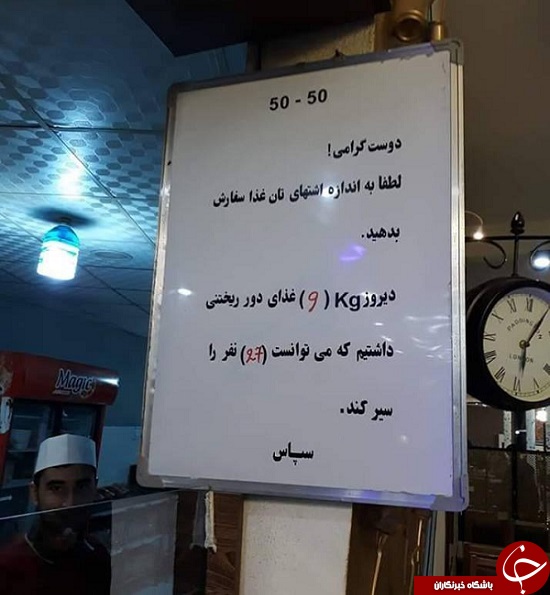 50 - 50
دوست گرامی!
لطفا به اندازه اشتهای تان غذا سفارش
بدهید.
دیروز Kg (9) غذای دور ریختنی
داشتیم که می توانست (27) نفر را
سیر کند.
سپاس
Magic
PADDINGTON
LONDON
باشگاه خبرنگاران